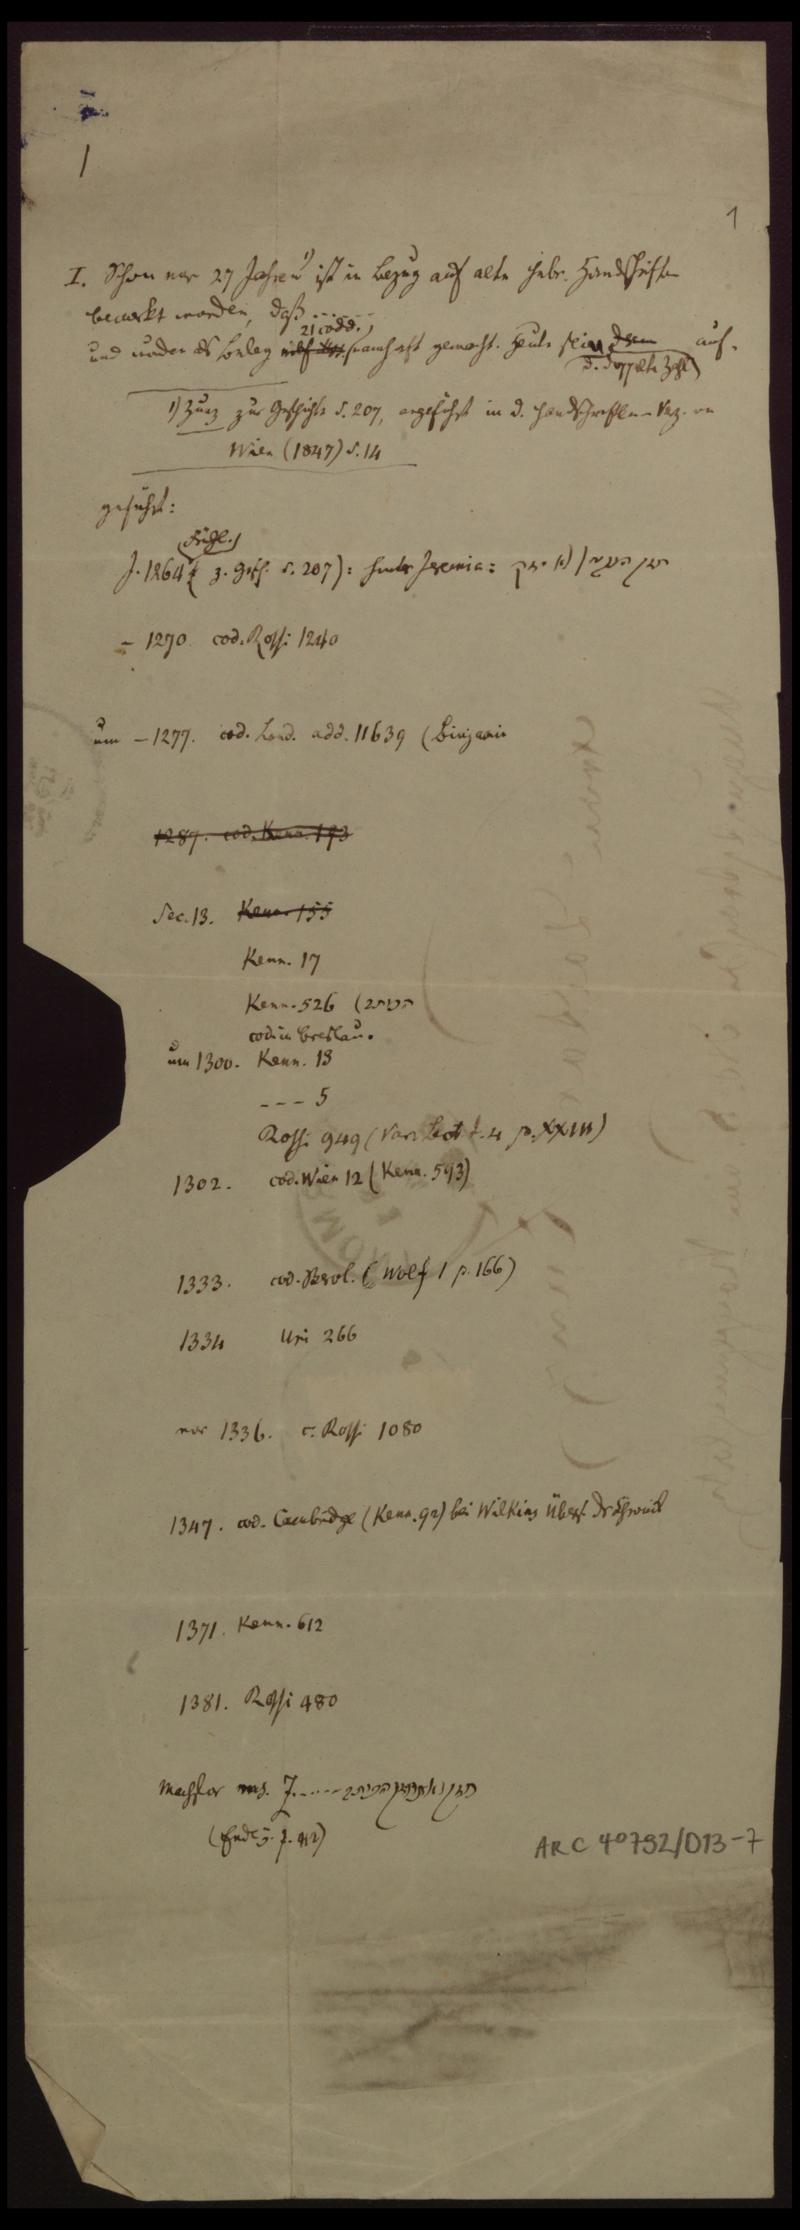 1
1
I. Schon vor 27 Jahren 1) ist in Bezug auf alte hebr. Handschriften
bemerkt worden, daß ......
21 codd.
und wurden als Beleg namhaft gemacht. Heute seien auf-
d. doppelte Zahl
1) Zunz zur Geschichte S. 207, angeführt in d. Handschriften-Verz. von
Wien (1847) S. 14
geführt:
J. 1264 ( z. Gesch. S. 207): hinter Jeremia:
– 1270. cod. Rossi 1240
um – 1277. cod. Lond. add. 11639 (Binjamin
1287. cod. Kenn. 193
Sec. 13. Kenn. 155
Kenn. 17
Kenn. 526
cod. in Breslau.
um 1300. Kenn. 13
- - - 5
Rossi 949 (Var. Lect t. 4 p. XXIII)
1302. cod. Wien 12 (Kenn. 593)
1333. cod. Berol. (Wolf 1 p. 166)
1334 Uri 266
vor 1336. c. Rossi 1080
1347. cod. Cambridge (Kenn. 92) bei Wilkins
1371. Kenn. 612
1381. Rossi 480
Machsor ms. J......
(Ende
ARC 4°792/D13-7